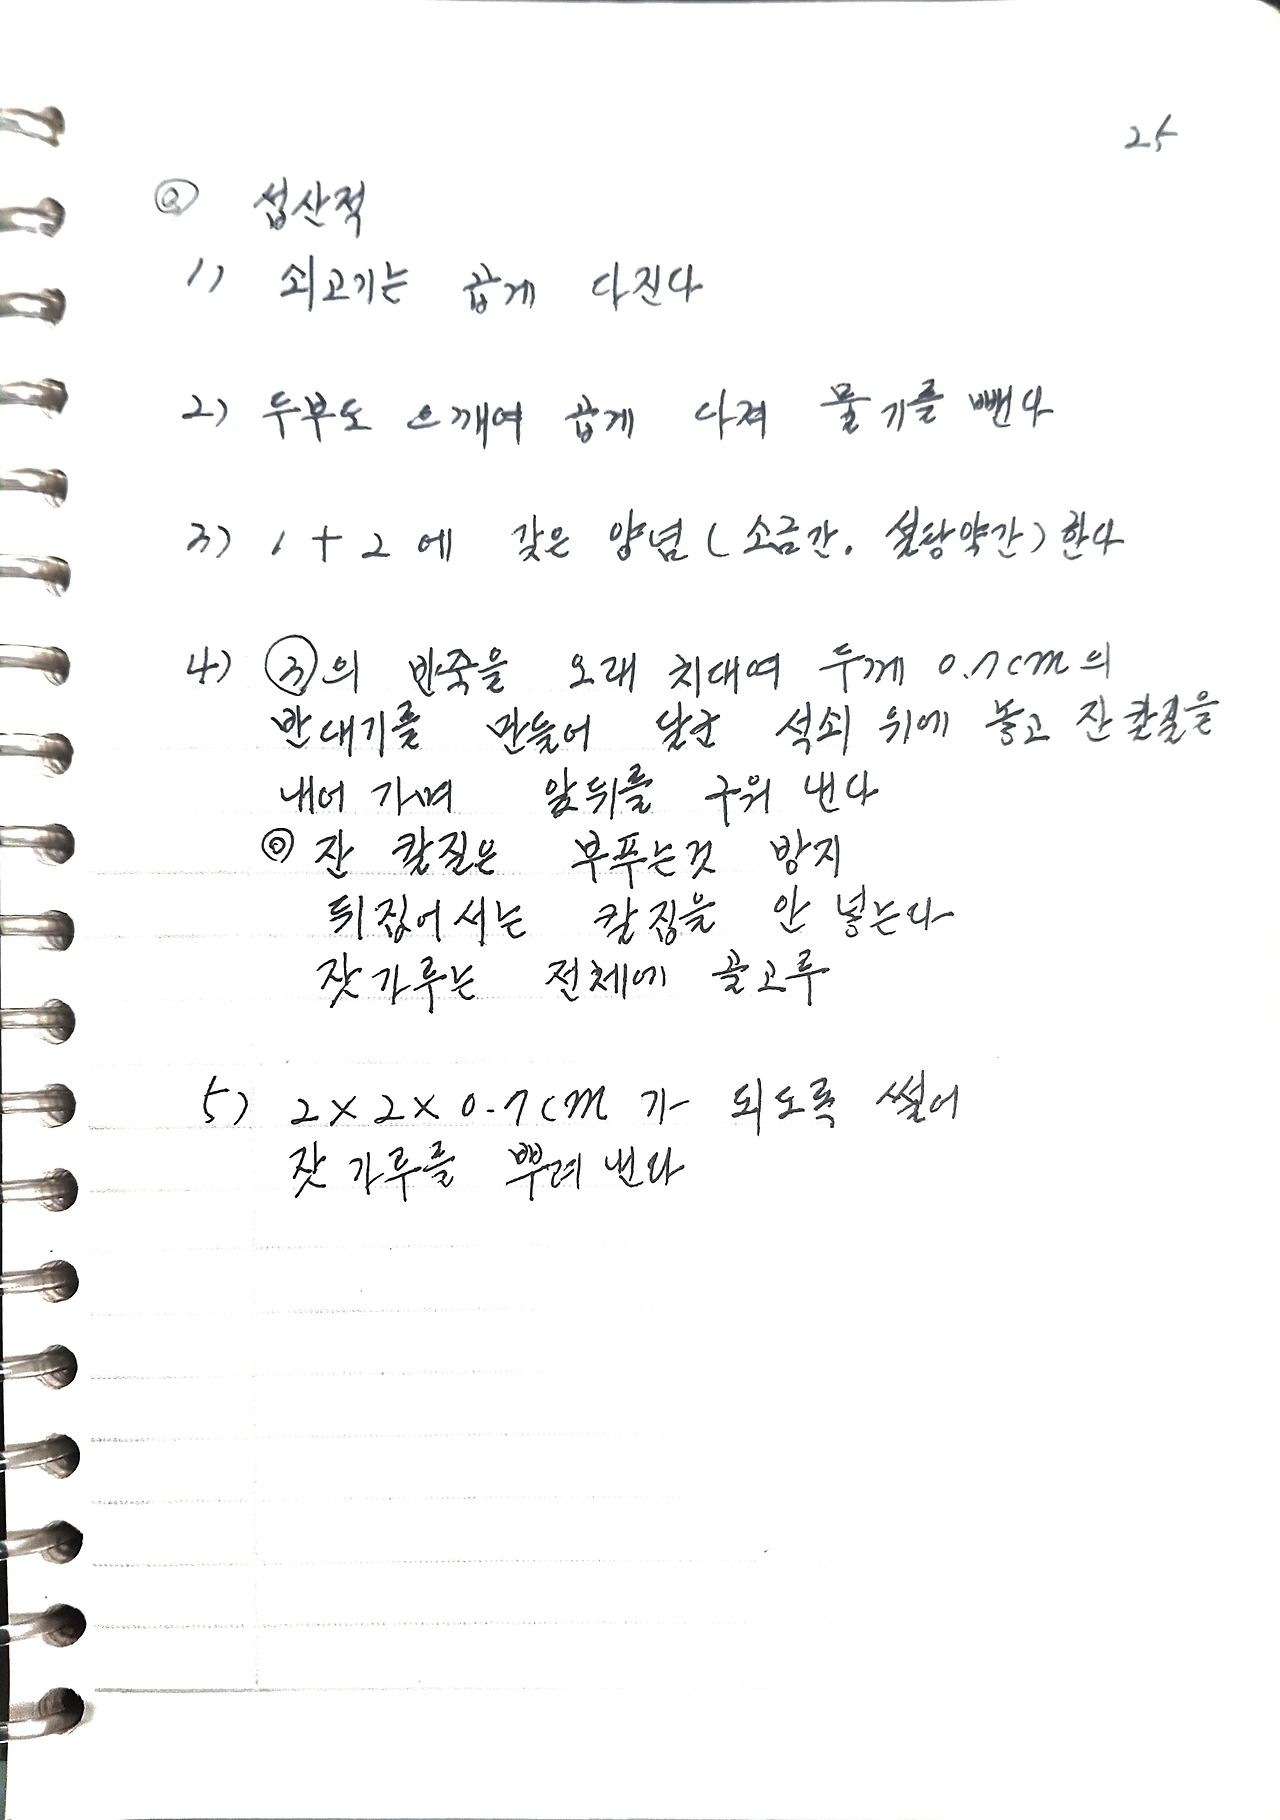 25
◎ 섭산적
1) 쇠고기는 곱게 다진다
2) 두부도 으깨여 곱게 다져 물기를 뺀다
3) 1+2에 갖은 양념(소금간. 설탕약간)한다
4) ③의 반죽을 오래 치대여 두께 0.7cm의
반대기를 만들어 달군 석쇠 위에 놓고 잔칼질을
내어 가며 앞뒤를 구워 낸다
◎ 잔 칼질은 부푸는것 방지
뒤집어서는 칼집을 안 넣는다
잣가루는 전체에 골고루
5) 2×2×0.7cm 가 되도록 썰어
잣가루를 뿌려 낸다